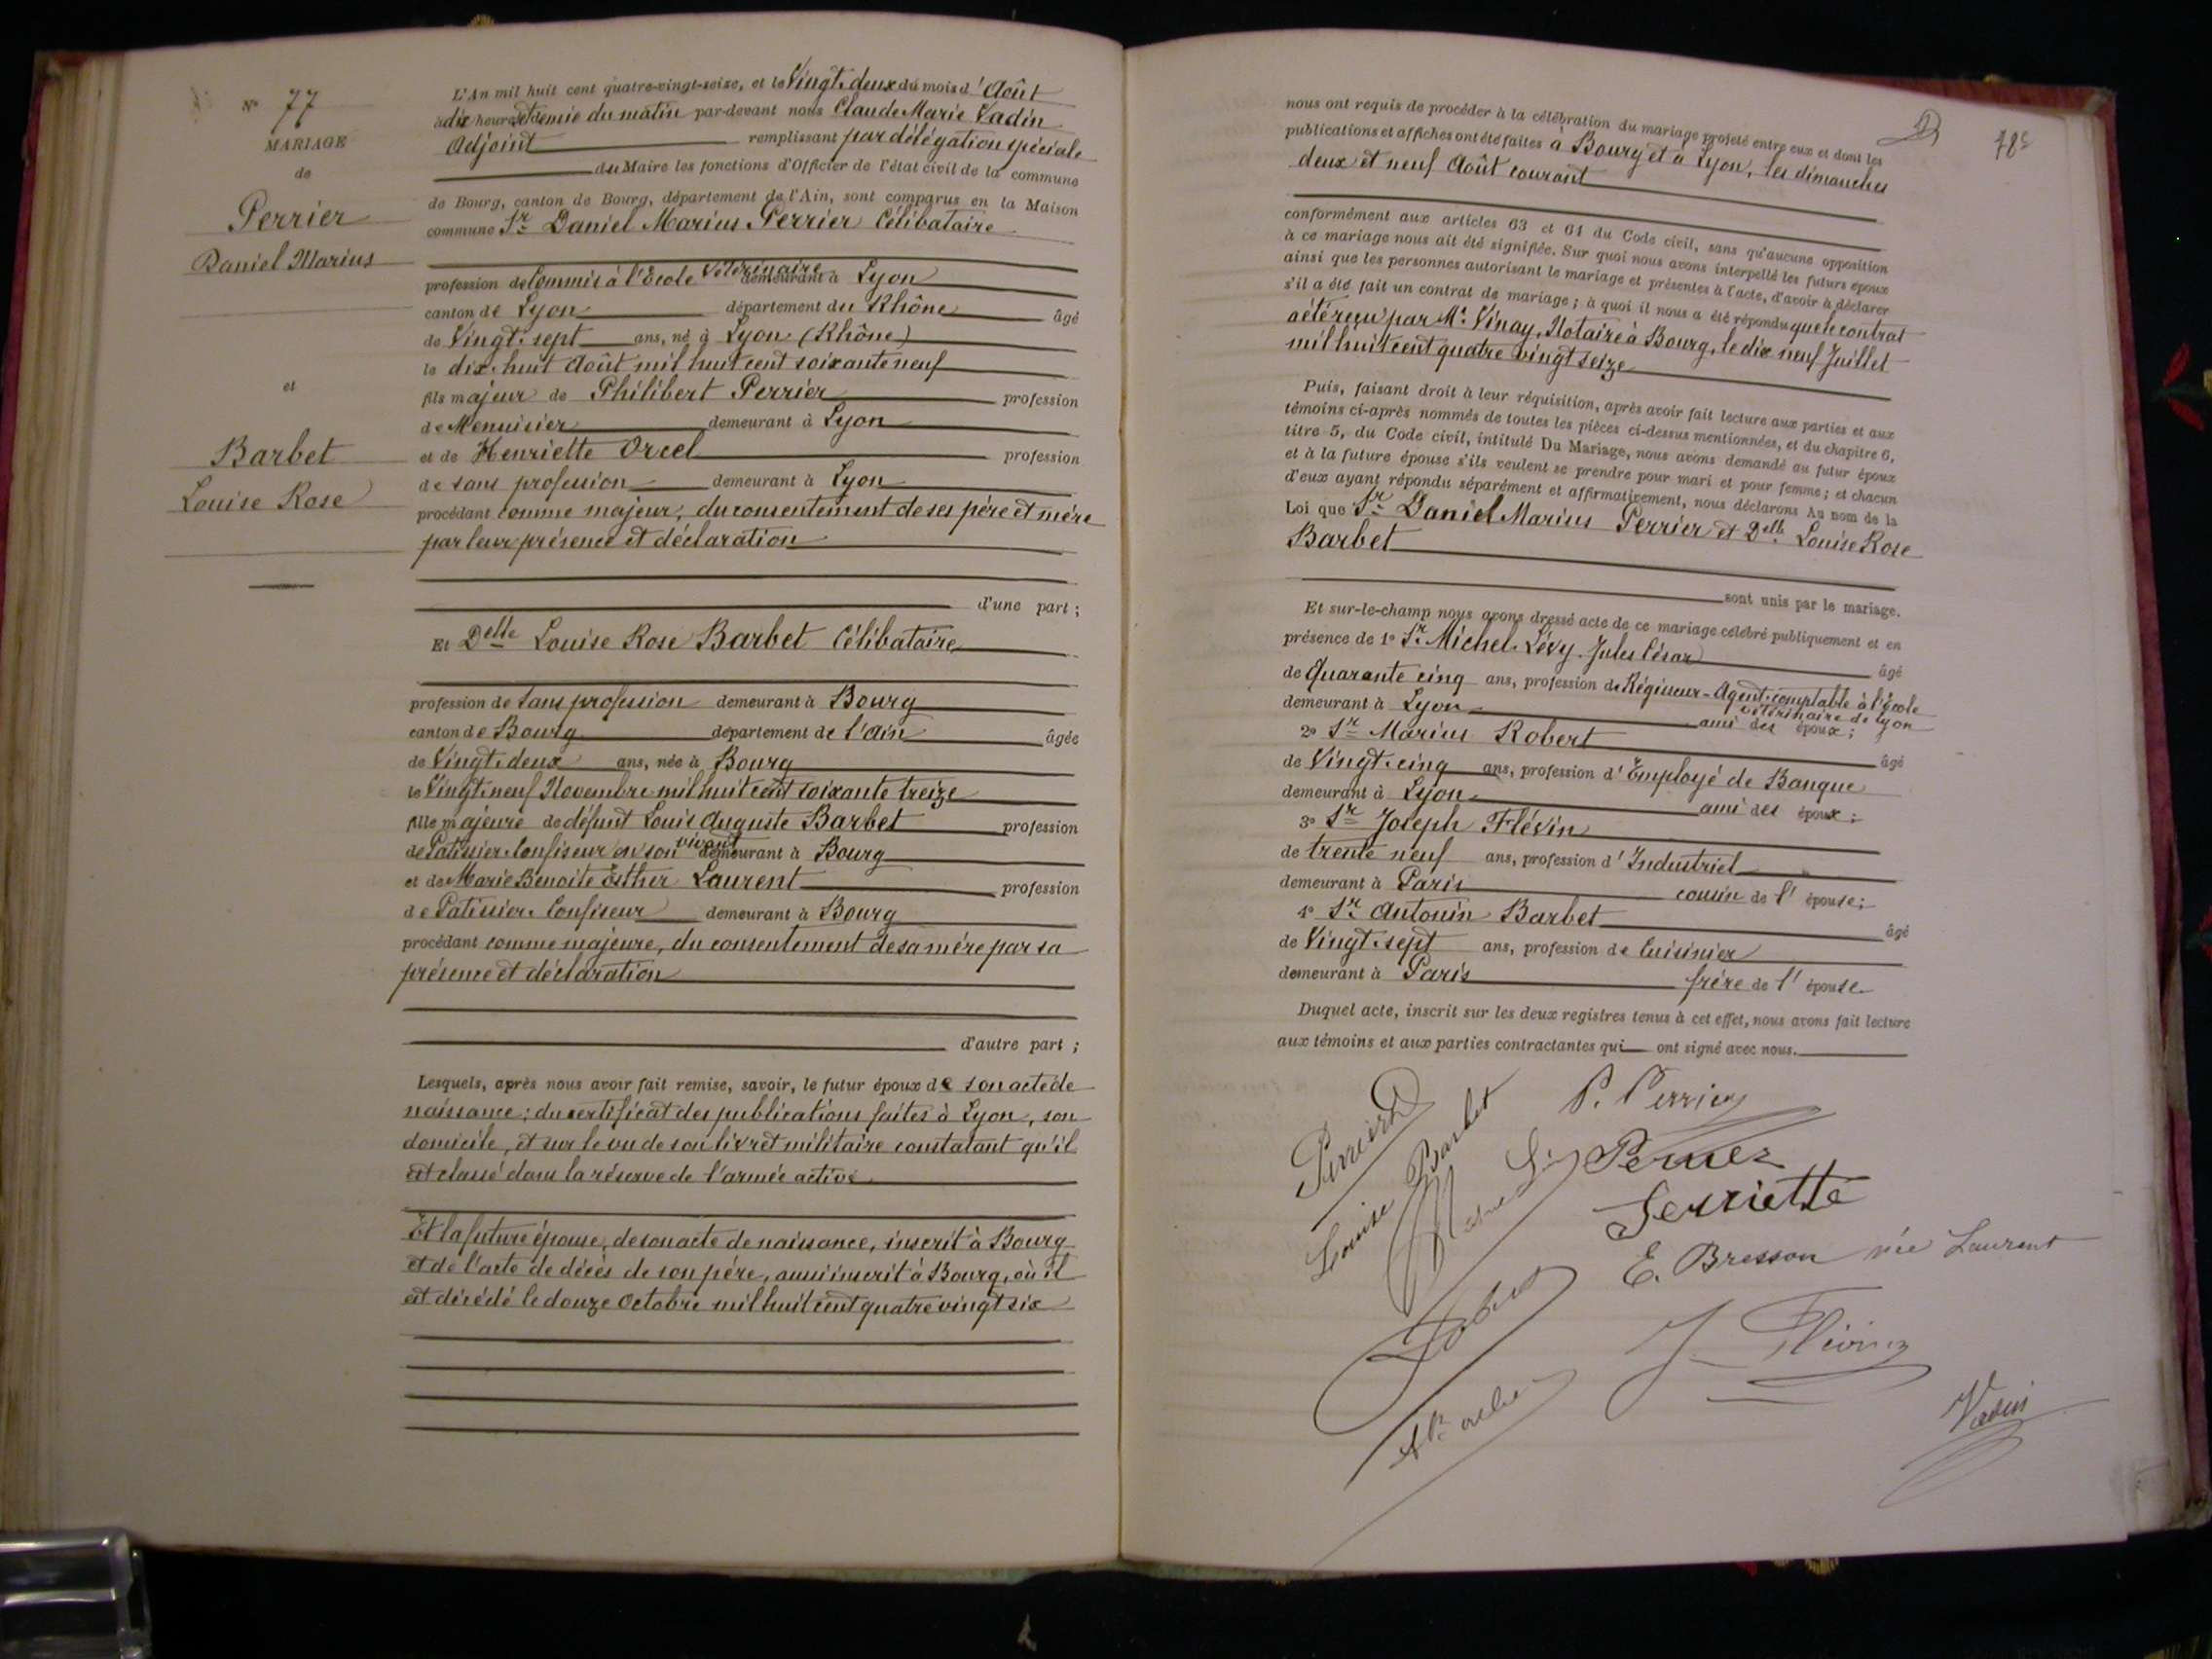 Nº 77
MARIAGE
de
Perrier
Daniel Marius
et
Barbet
Louise Rose
L'An mil huit cent quatre-vingt-seize, et le Vingt-deux du mois d'Août
à dix heures et demie du matin par-devant nous Claude Marie Vadin
Adjoint remplissant par délégation spéciale
du Maire les fonctions d'Officier de l'état civil de la commune
de Bourg, canton de Bourg, département de l'Ain, sont comparus en la Maison
commune Sr Daniel Marius Perrier Célibataire
profession de Commis à l'École Vétérinaire demeurant à Lyon
canton de Lyon département du Rhône âgé
de Vingt-sept ans, né à Lyon (Rhône)
le dix-huit Août mil huit cent soixante neuf
fils majeur de Philibert Perrier profession
de Menuisier demeurant à Lyon
et de Henriette Orcel profession
de sans profession demeurant à Lyon
procédant comme majeur, du consentement de ses père et mère
par leur présence et déclaration
d'une part ;
Et Delle Louise Rose Barbet Célibataire
profession de Sans profession demeurant à Bourg
canton de Bourg département de l'Ain âgée
de Vingt-deux ans, née à Bourg
le Vingt-neuf Novembre mil huit cent soixante treize
fille majeure de défunt Louis Auguste Barbet profession
de Patissier-Confiseur en son vivant demeurant à Bourg
et de Marie Benoite Esther Laurent profession
de Patissier-Confiseur demeurant à Bourg
procédant comme majeure, du consentement de sa mère par sa
présence et déclaration
d'autre part ;
Lesquels, après nous avoir fait remise, savoir, le futur époux de son acte de
naissance ; du certificat des publications faites à Lyon, son
domicile, et sur le vu de son livret militaire constatant qu'il
est classé dans la réserve de l'armée active
Et la future épouse, de son acte de naissance, inscrit à Bourg
et de l'acte de décès de son père, aussi inscrit à Bourg, où il
est décédé le douze Octobre mil huit cent quatre vingt six
78
nous ont requis de procéder à la célébration du mariage projeté entre eux et dont les
publications et affiches ont été faites à Bourg et à Lyon, les dimanches
deux et neuf Août courant
conformément aux articles 63 et 64 du Code civil, sans qu'aucune opposition
à ce mariage nous ait été signifiée. Sur quoi nous avons interpellé les futurs époux
ainsi que les personnes autorisant le mariage et présentes à l'acte, d'avoir à déclarer
s'il a été fait un contrat de mariage ; à quoi il nous a été répondu que le contrat
a été reçu par Me Vinay, Notaire à Bourg, le dix neuf Juillet
mil huit cent quatre vingt seize
Puis, faisant droit à leur réquisition, après avoir fait lecture aux parties et aux
témoins ci-après nommés de toutes les pièces ci-dessus mentionnées, et du chapitre 6,
titre 5, du Code civil, intitulé Du Mariage, nous avons demandé au futur époux
et à la future épouse s'ils veulent se prendre pour mari et pour femme ; et chacun
d'eux ayant répondu séparément et affirmativement, nous déclarons Au nom de la
Loi que Sr Daniel Marius Perrier et Delle Louise Rose
Barbet
sont unis par le mariage.
Et sur-le-champ nous avons dressé acte de ce mariage célébré publiquement et en
présence de 1º Sr Michel-Lévy Jules César âgé
de Quarante cinq ans, profession de Régisseur-Agent-comptable à l'école
vétérinaire de Lyon
demeurant à Lyon ami des époux ;
2º Sr Marius Robert âgé
de Vingt-cinq ans, profession d'Employé de Banque
demeurant à Lyon ami des époux ;
3º Sr Joseph Flévin
de trente neuf ans, profession d'Industriel
demeurant à Paris cousin de l'épouse ;
4º Sr Antonin Barbet âgé
de Vingt-sept ans, profession de Cuisinier
demeurant à Paris frère de l'épouse
Duquel acte, inscrit sur les deux registres tenus à cet effet, nous avons fait lecture
aux témoins et aux parties contractantes qui ont signé avec nous.
Perrier D
P. Perrier
Louise Barbet
E. Bresson née Laurent
J. Flévin
Vadin